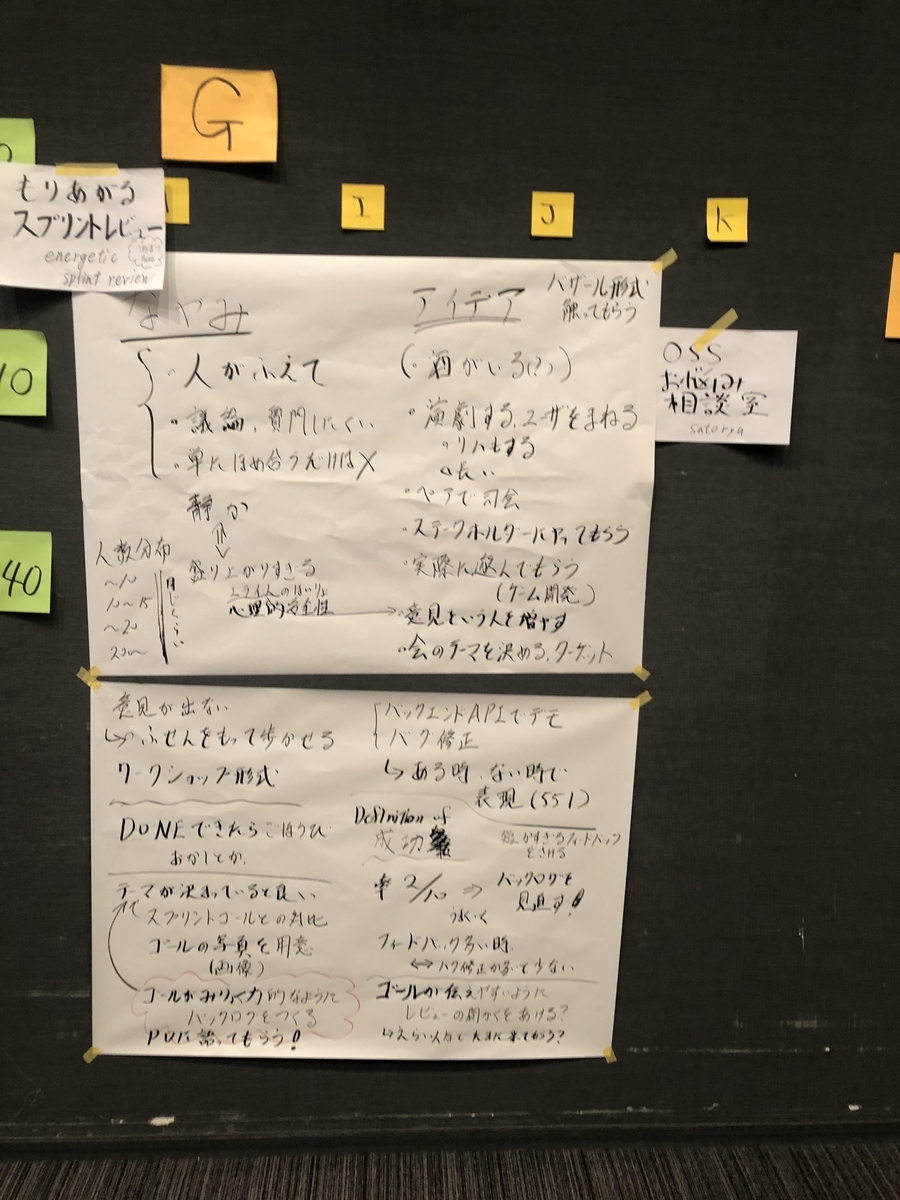 G
もりあがる
スプリントレビュー
energetic
sprint review
I
J
K
10
40
OSS
お悩み
相談室
satoryu
なやみ
・人がふえて
・議論、質問しにくい
・単にほめ合うだけは✕
静か
⇕
盛り上がりすぎる
心理的安全性
人数分布
～10
10～15
～20
20～
同じくらい
アイデア
バザール形式
触ってもらう
(・酒がいる(?))
・演劇する、ユーザをまねる
・リハもする
長い
・ペアで司会
・ステークホルダーにやってもらう
・実際に遊んでもらう
(ゲーム開発)
・意見をいう人を増やす
・会のテーマを決める、ターゲット
意見が出ない
↳ふせんをもって歩かせる
ワークショップ形式
DONEできたらごほうび
おかしとか、
テーマが決まっていると良い
スプリントゴールとの対比
ゴールの写真を用意
(画像)
ゴールがみりょく力的なように
バックログをつくる
POに語ってもらう!
バックエンドAPIでデモ
バグ修正
↳ある時、ない時で
表現(551)
Definition of
成功
細かすぎるフィードバック
をさける
率 2/10 ⇒ バックログを
見直す!
うまくいく
フィードバック多い時、
⇔バグ修正が多くて少ない
ゴールが伝えやすいように
レビューの間かくをあける?
↳えらい人にたまに来てもらう?